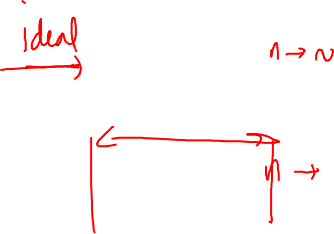 ideal
n → N
n →